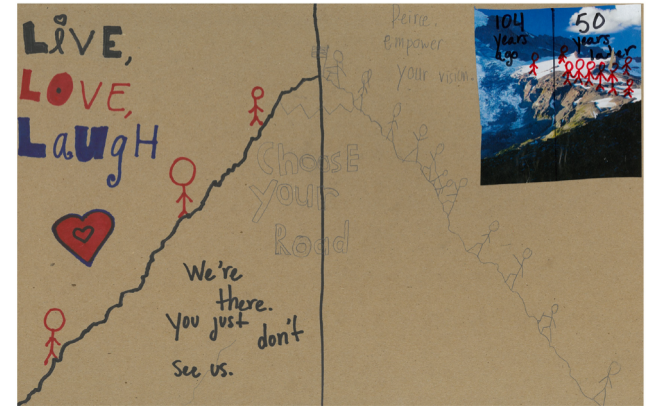 LiVE,
LOVE,
LauGH
CHOOSE
your
Road
We're
there.
You just
don't
see us.
empower
your vision.
104
years
ago
50
years
later